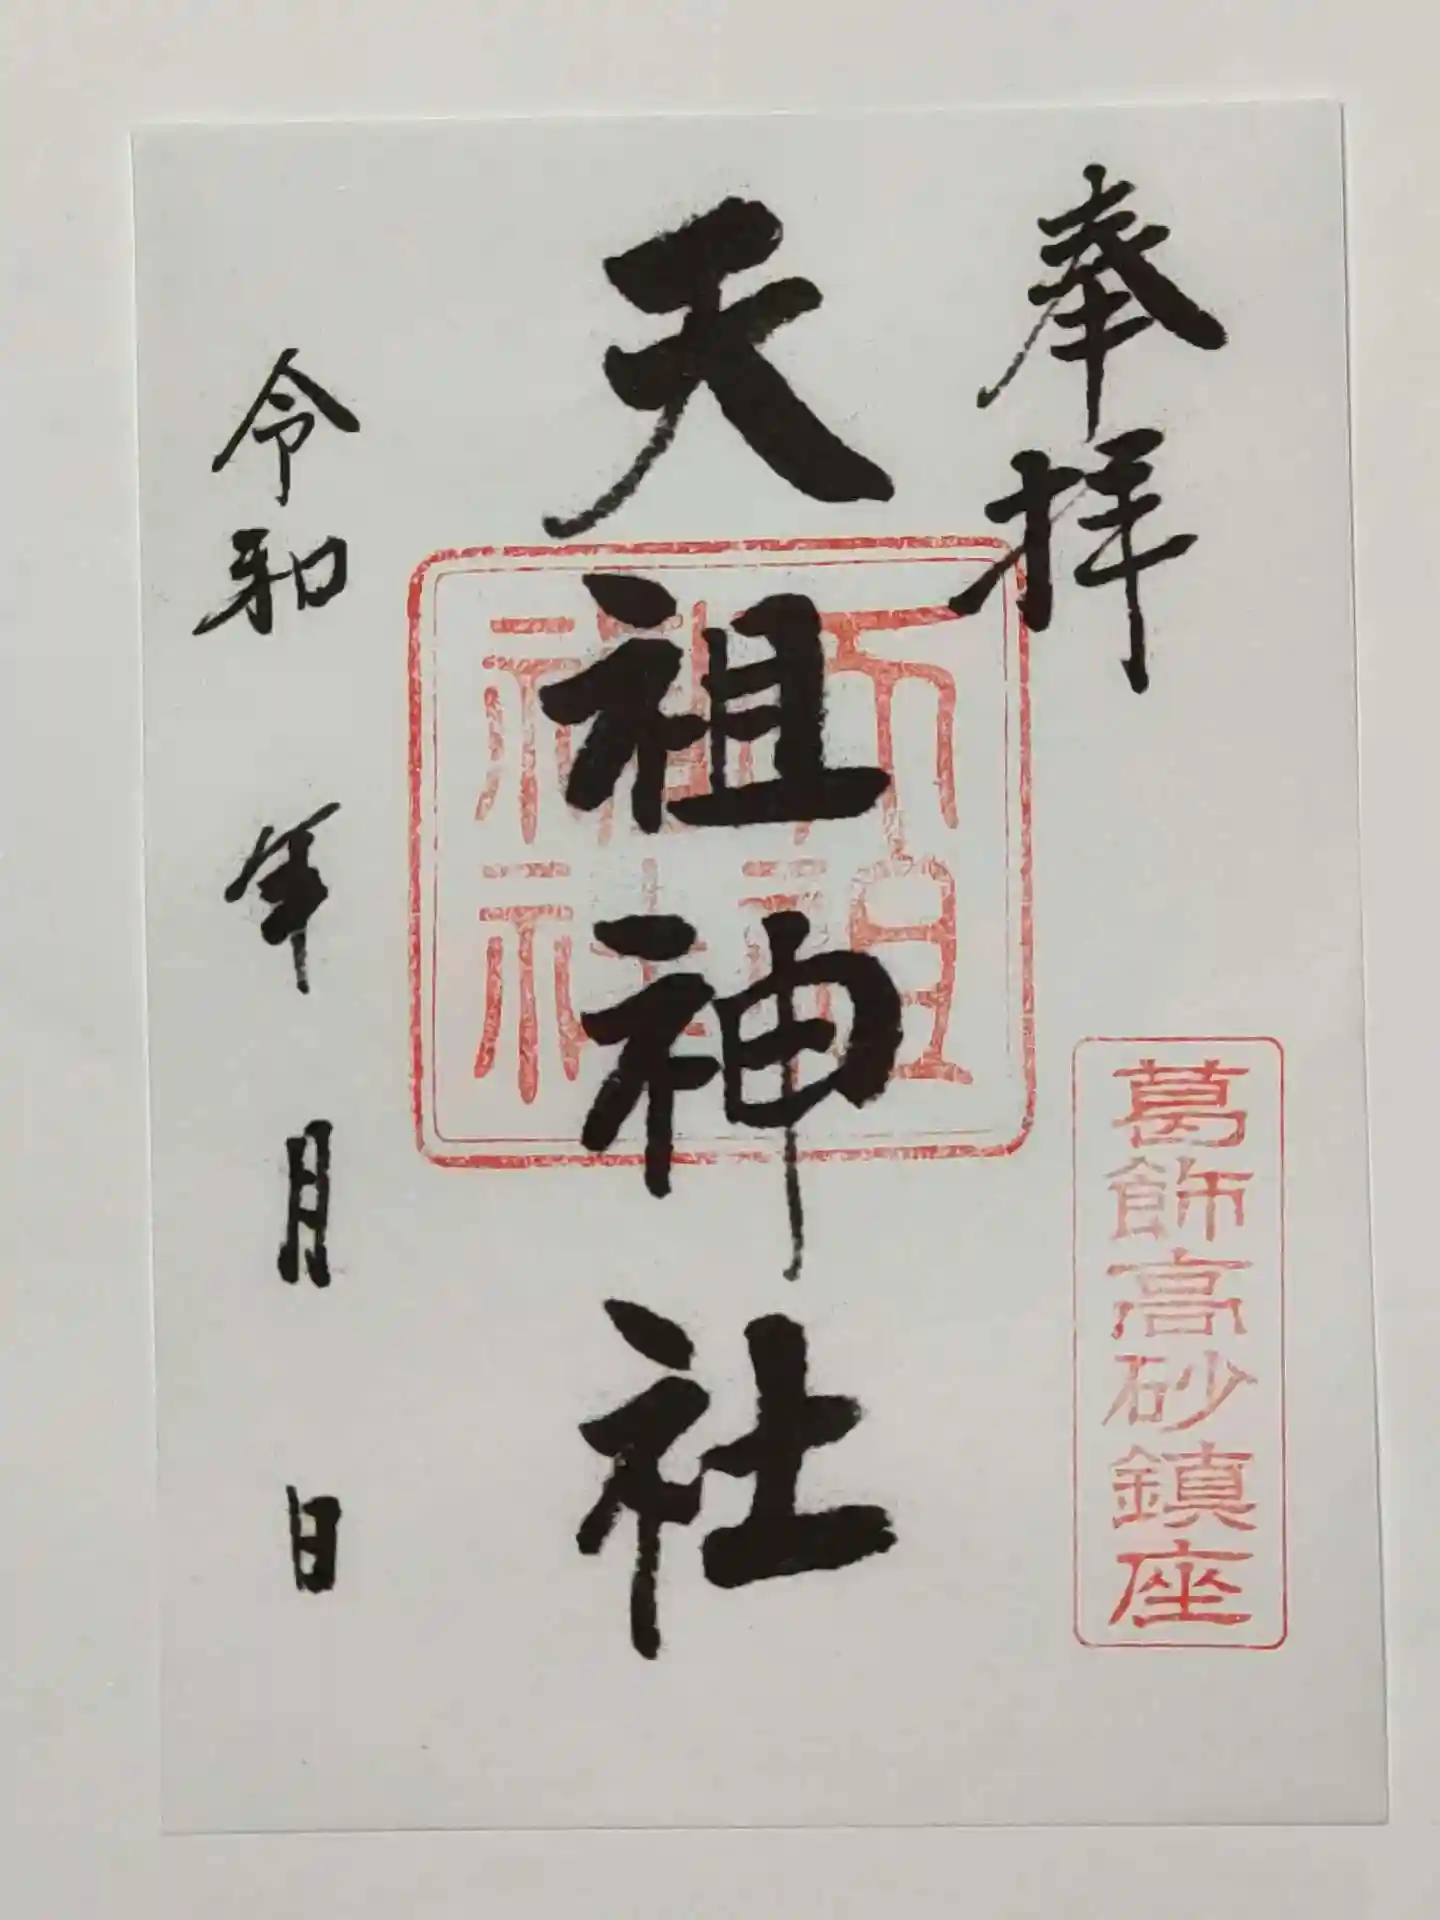 奉拝
葛飾高砂鎮座
天祖神社
天祖
神社
令和 年 月 日